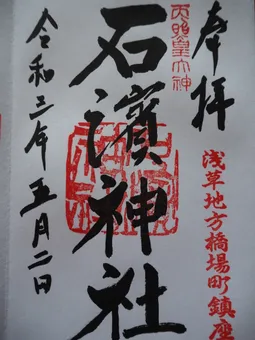 奉拝
天照皇大神
石濱神社
浅草地方橋場町鎮座
令和三年五月二日